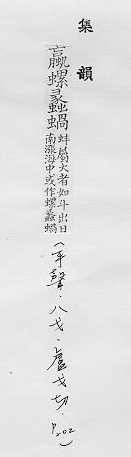 集韻
蠃螺蠡蝸
蚌屬大者如斗出日
南漲海中或作螺蠡蝸
（平聲．八戈．盧戈切．P202）